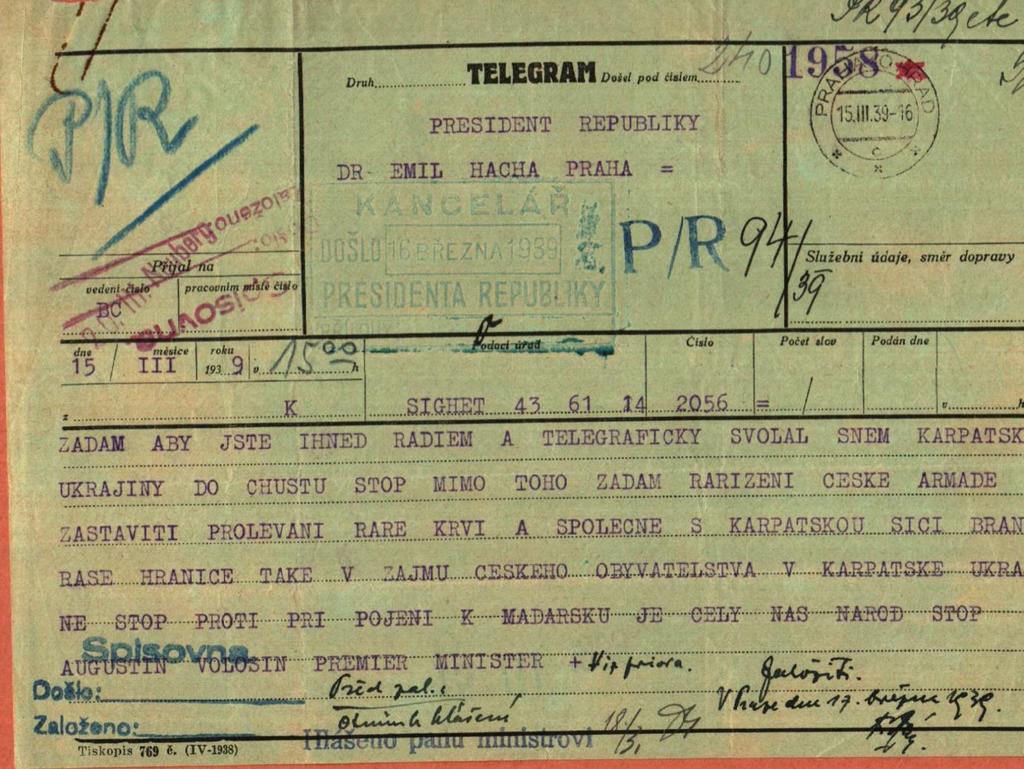 PR 93/39
Druh TELEGRAM Došel pod číslem 240 1958
PRAHA HRAD
15.III.39-16
C
P/R
PRESIDENT REPUBLIKY
DR EMIL HACHA PRAHA =
KANCELÁŘ
DOŠLO 16 BŘEZNA 1939
PRESIDENTA REPUBLIKY
P/R 94/39
Založeno:
Spisovna
Přijal na
vedení číslo
pracovním místě číslo
BC
Služební údaje, směr dopravy
dne měsíce roku
15 / III 1939 v 15 00 h
Podací úřad
Číslo
Počet slov
Podán dne
z K SIGHET 43 61 14 2056 = / v h
ZADAM ABY JSTE IHNED RADIEM A TELEGRAFICKY SVOLAL SNEM KARPATSK
UKRAJINY DO CHUSTU STOP MIMO TOHO ZADAM RARIZENI CESKE ARMADE
ZASTAVITI PROLEVANI RARE KRVI A SPOLECNE S KARPATSKOU SICI BRAN
RASE HRANICE TAKE V ZAJMU CESKEHO OBYVATELSTVA V KARPATSKE UKRA
NE STOP PROTI PRI POJENI K MADARSKU JE CELY NAS NAROD STOP
Spisovna
AUGUSTIN VOLOSIN PREMIER MINISTER +
Došlo:
Založeno:
Založiti.
V Praze dne 17. března 1939.
hlášení
Hlášeno panu ministrovi
Tiskopis 769 č. (IV-1938)